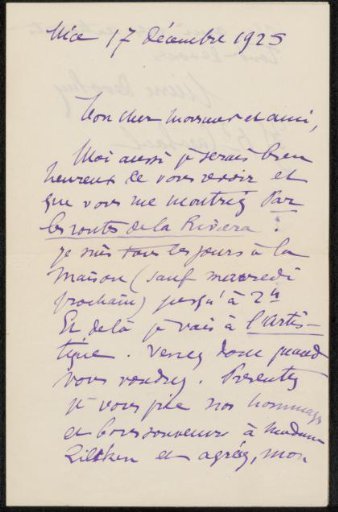 Nice 17 décembre 1925
Mon cher Monsieur et ami,
Moi aussi je serais bien
heureux de vous revoir et
que vous me montriez Par
les routes de la Riviera !
je suis tous les jours à la
maison (sauf mercredi
prochain) jusqu'à 2h
Et de là je vais à l'Artis-
tique. Venez donc quand
vous voudrez. Présentez
je vous prie nos hommages
et bons souvenirs à Madame
Zilcken et agréez, mon